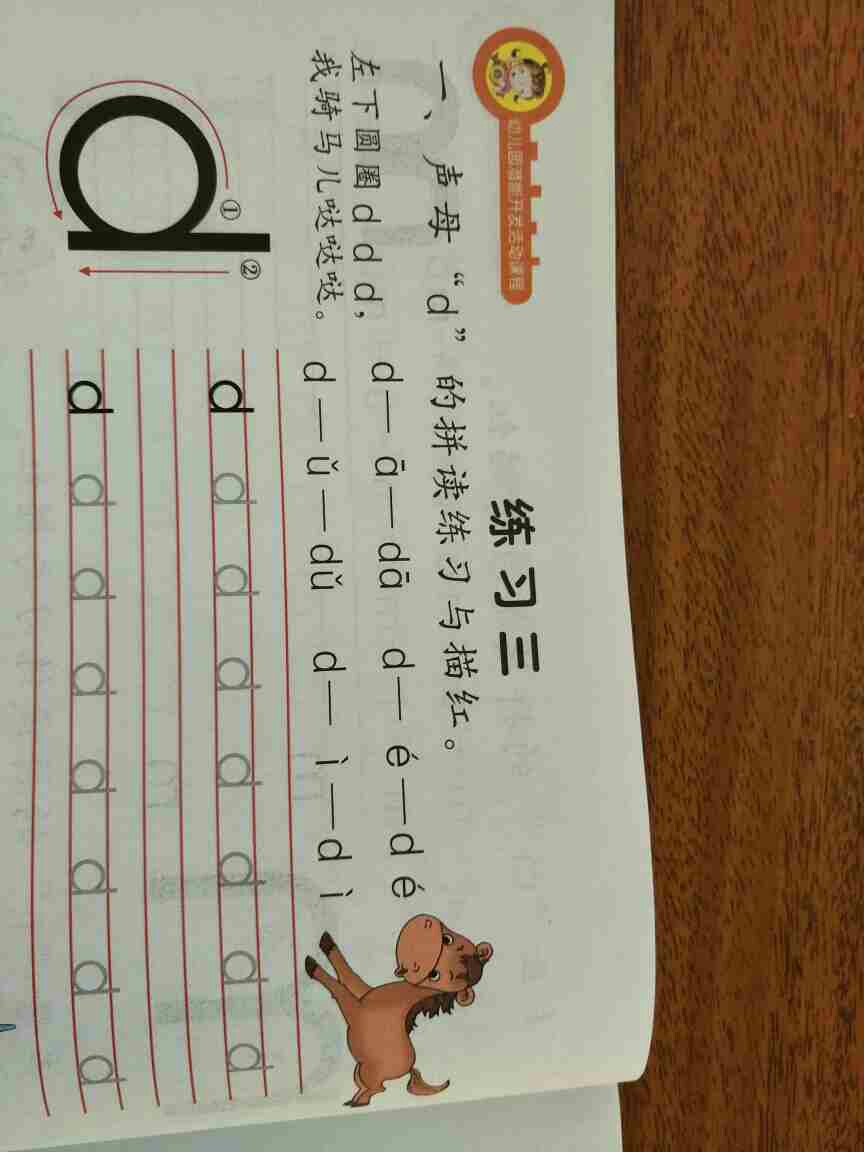 幼儿园潜能开发活动课程
练习三
一、声母“d”的拼读练习与描红。
左下圆圈ddd,
我骑马儿哒哒哒。
d—ā—dā d—é—dé
d—ǔ—dǔ d—ì—dì
① ②
d
d d d d d d d d
d d d d d d d d